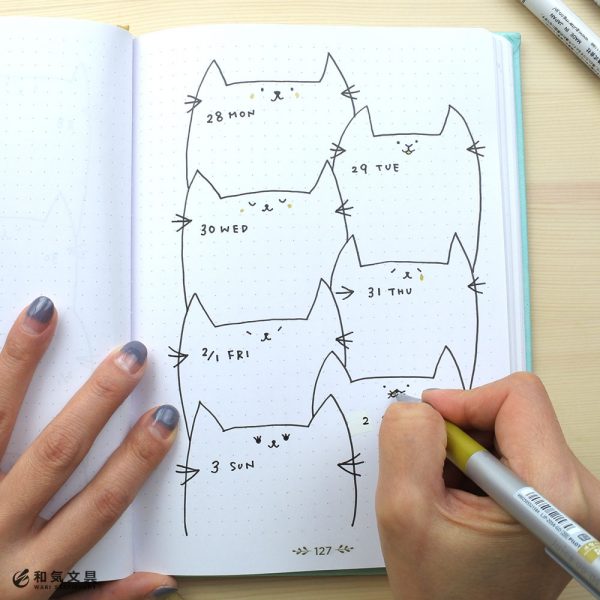 28 MON
29 TUE
30 WED
31 THU
2/1 FRI
2
3 SUN
127
和気文具
WAKI STATIONERY